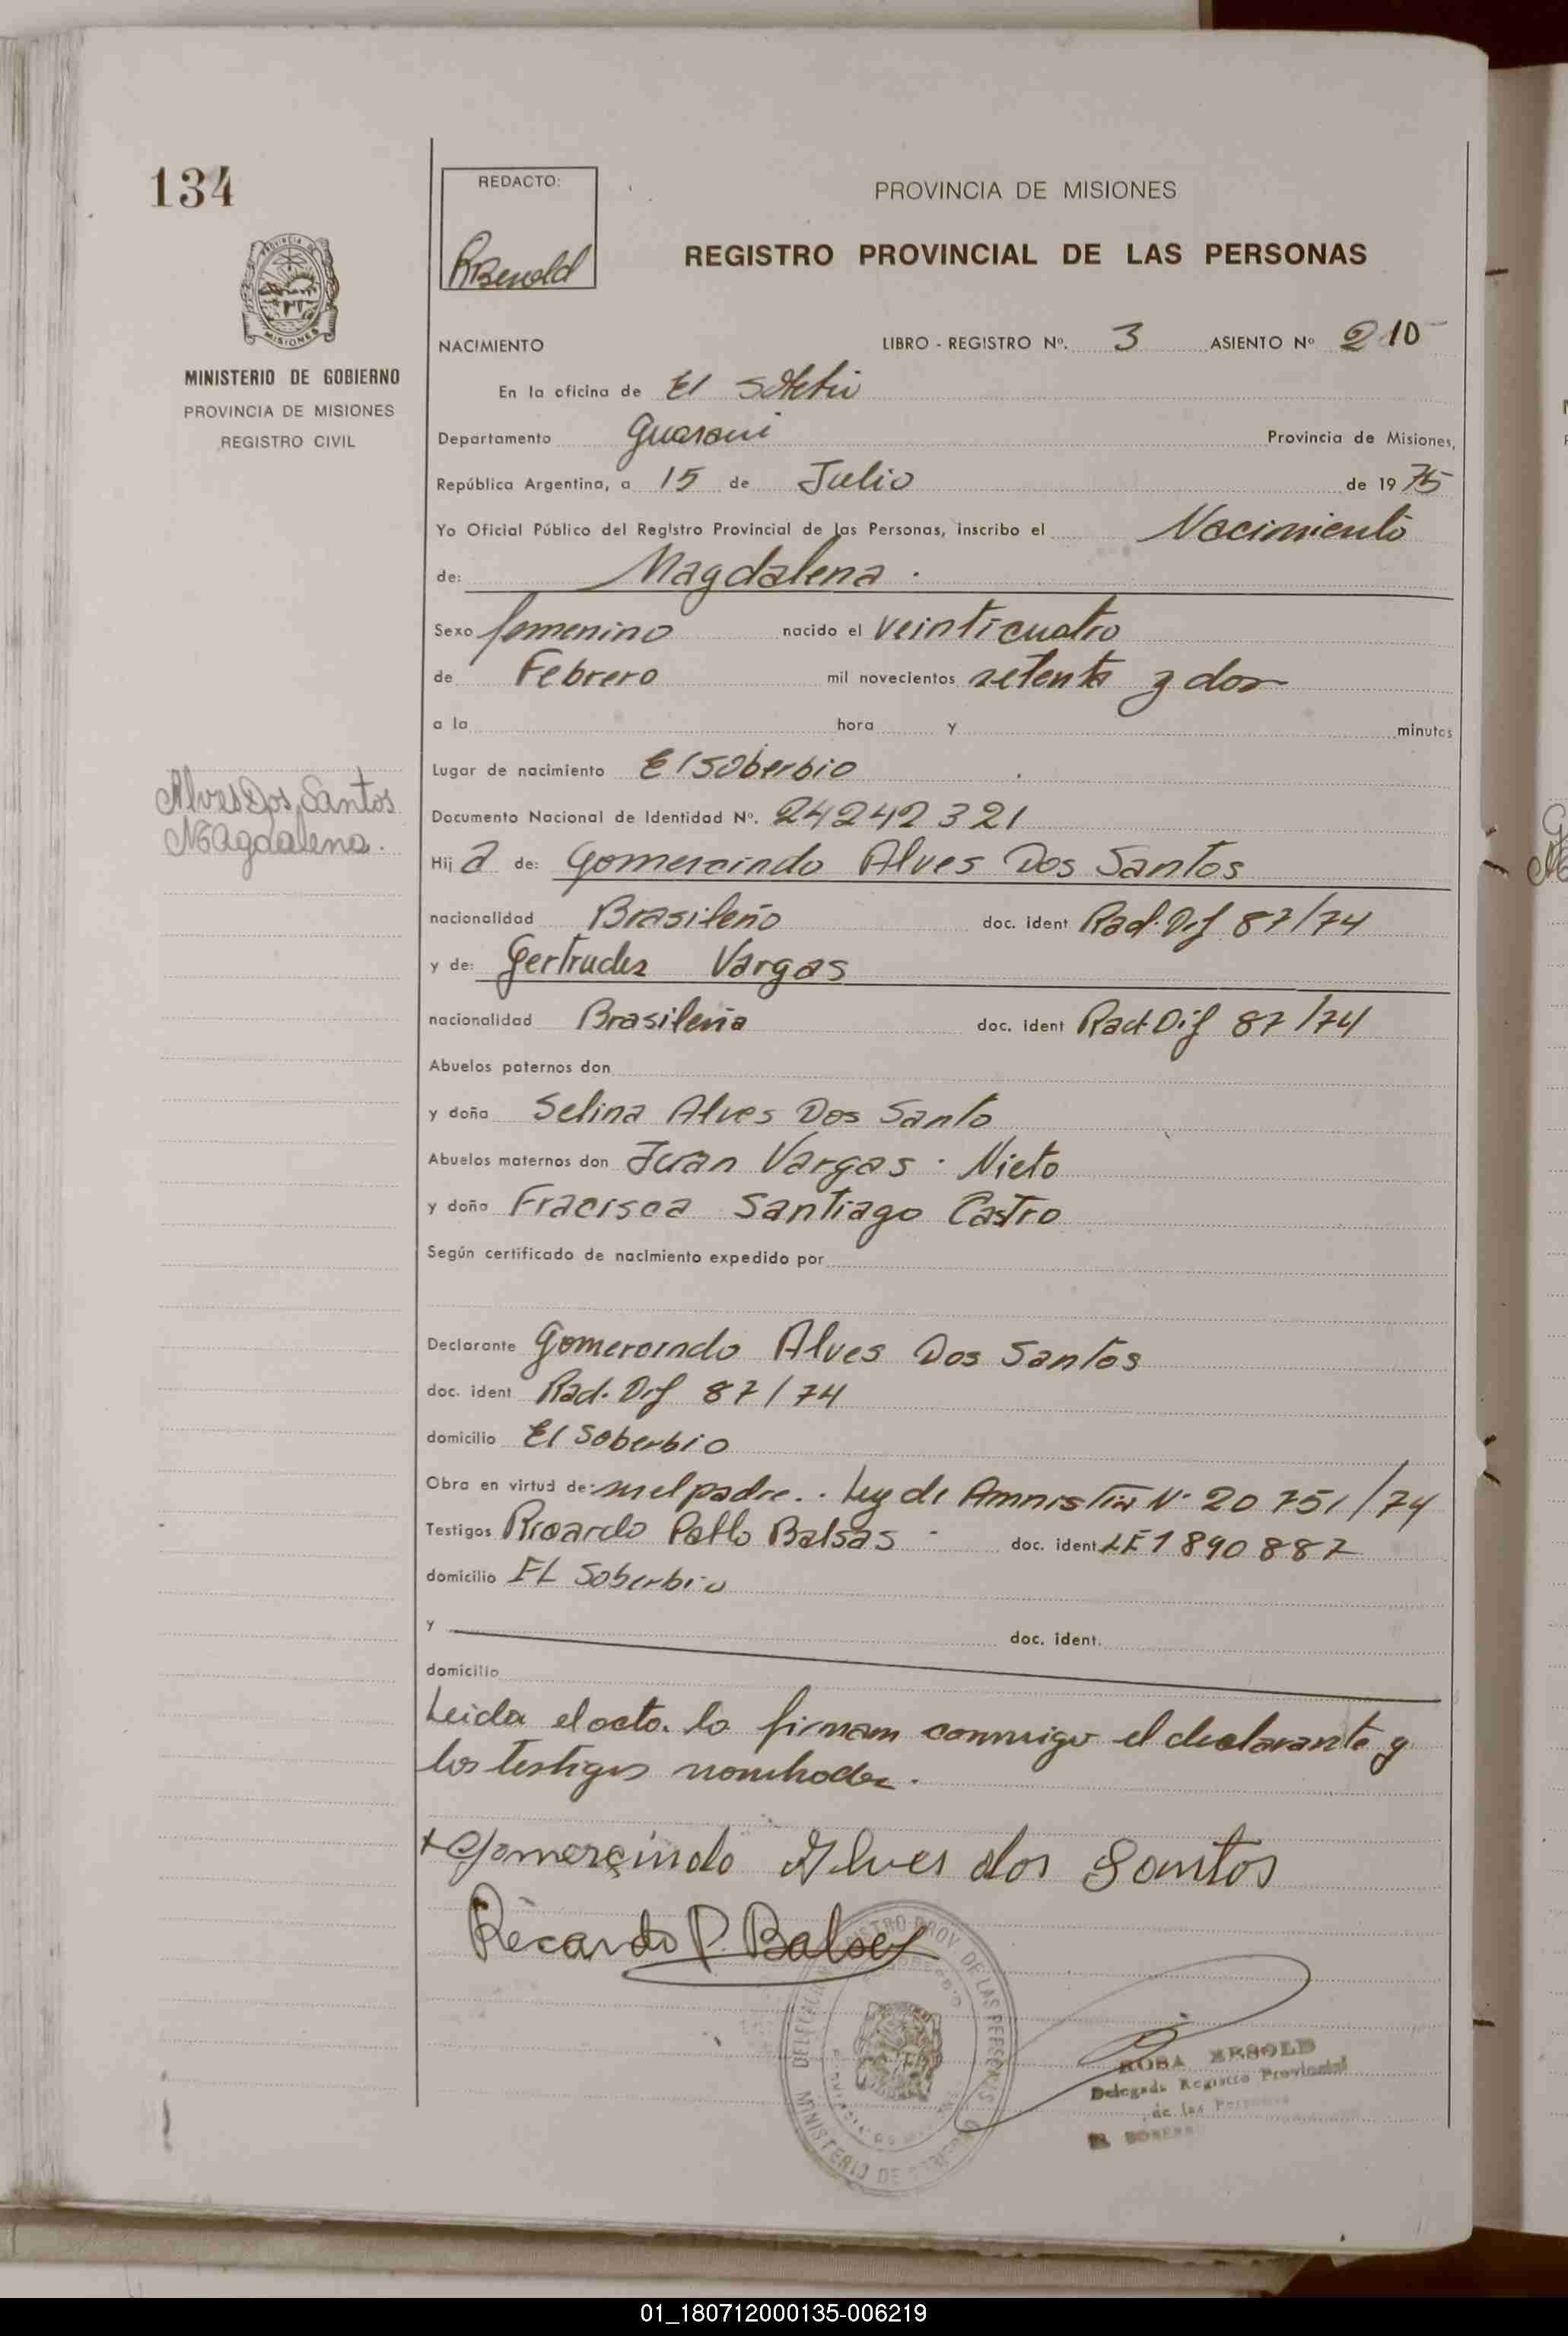 134
REDACTO:
PROVINCIA DE MISIONES
REGISTRO PROVINCIAL DE LAS PERSONAS
MISIONES
MINISTERIO DE GOBIERNO
PROVINCIA DE MISIONES
REGISTRO CIVIL
NACIMIENTO LIBRO - REGISTRO Nº. 3 ASIENTO Nº 210
En la oficina de El
Departamento Guarani Provincia de Misiones,
República Argentina, a 15 de Julio de 1975
Yo Oficial Público del Registro Provincial de las Personas, inscribo el Nacimiento
de: Magdalena.
Sexo femenino nacido el veinticuatro
de Febrero mil novecientos setenta y dos
a la hora y minutos
Lugar de nacimiento El Soberbio
Alves Dos Santos
Magdalena.
Documento Nacional de Identidad Nº. 24242321
Hija de: Gomercindo Alves Dos Santos
nacionalidad Brasileño doc. ident Rad. Dif 87/74
y de: Gertrudes Vargas
nacionalidad Brasileña doc. ident Rad. Dif 87/74
Abuelos paternos don
y doña Selina Alves Dos Santo
Abuelos maternos don Juan Vargas. Nieto
y doña Fracisca Santiago Castro
Según certificado de nacimiento expedido por
Declarante Gomercindo Alves Dos Santos
doc. ident Rad. Dif 87/74
domicilio El Soberbio
Obra en virtud de: ser el padre.. Ley de Amnistía Nº 20751/74
Testigos Ricardo Pablo Balsas - doc. ident LE 1890887
domicilio EL Soberbio
y doc. ident.
domicilio
Leida el acta. la firman conmigo el declarante y
los testigos nombrados.
+Gomerçindo Alves dos Santos
Ricardo P. Balsas
DELEGACION REGISTRO PROV. DE LAS PERSONAS
MINISTERIO DE GOBIERNO
ROSA
Delegada Registro Provincial
de las Personas
01_180712000135-006219